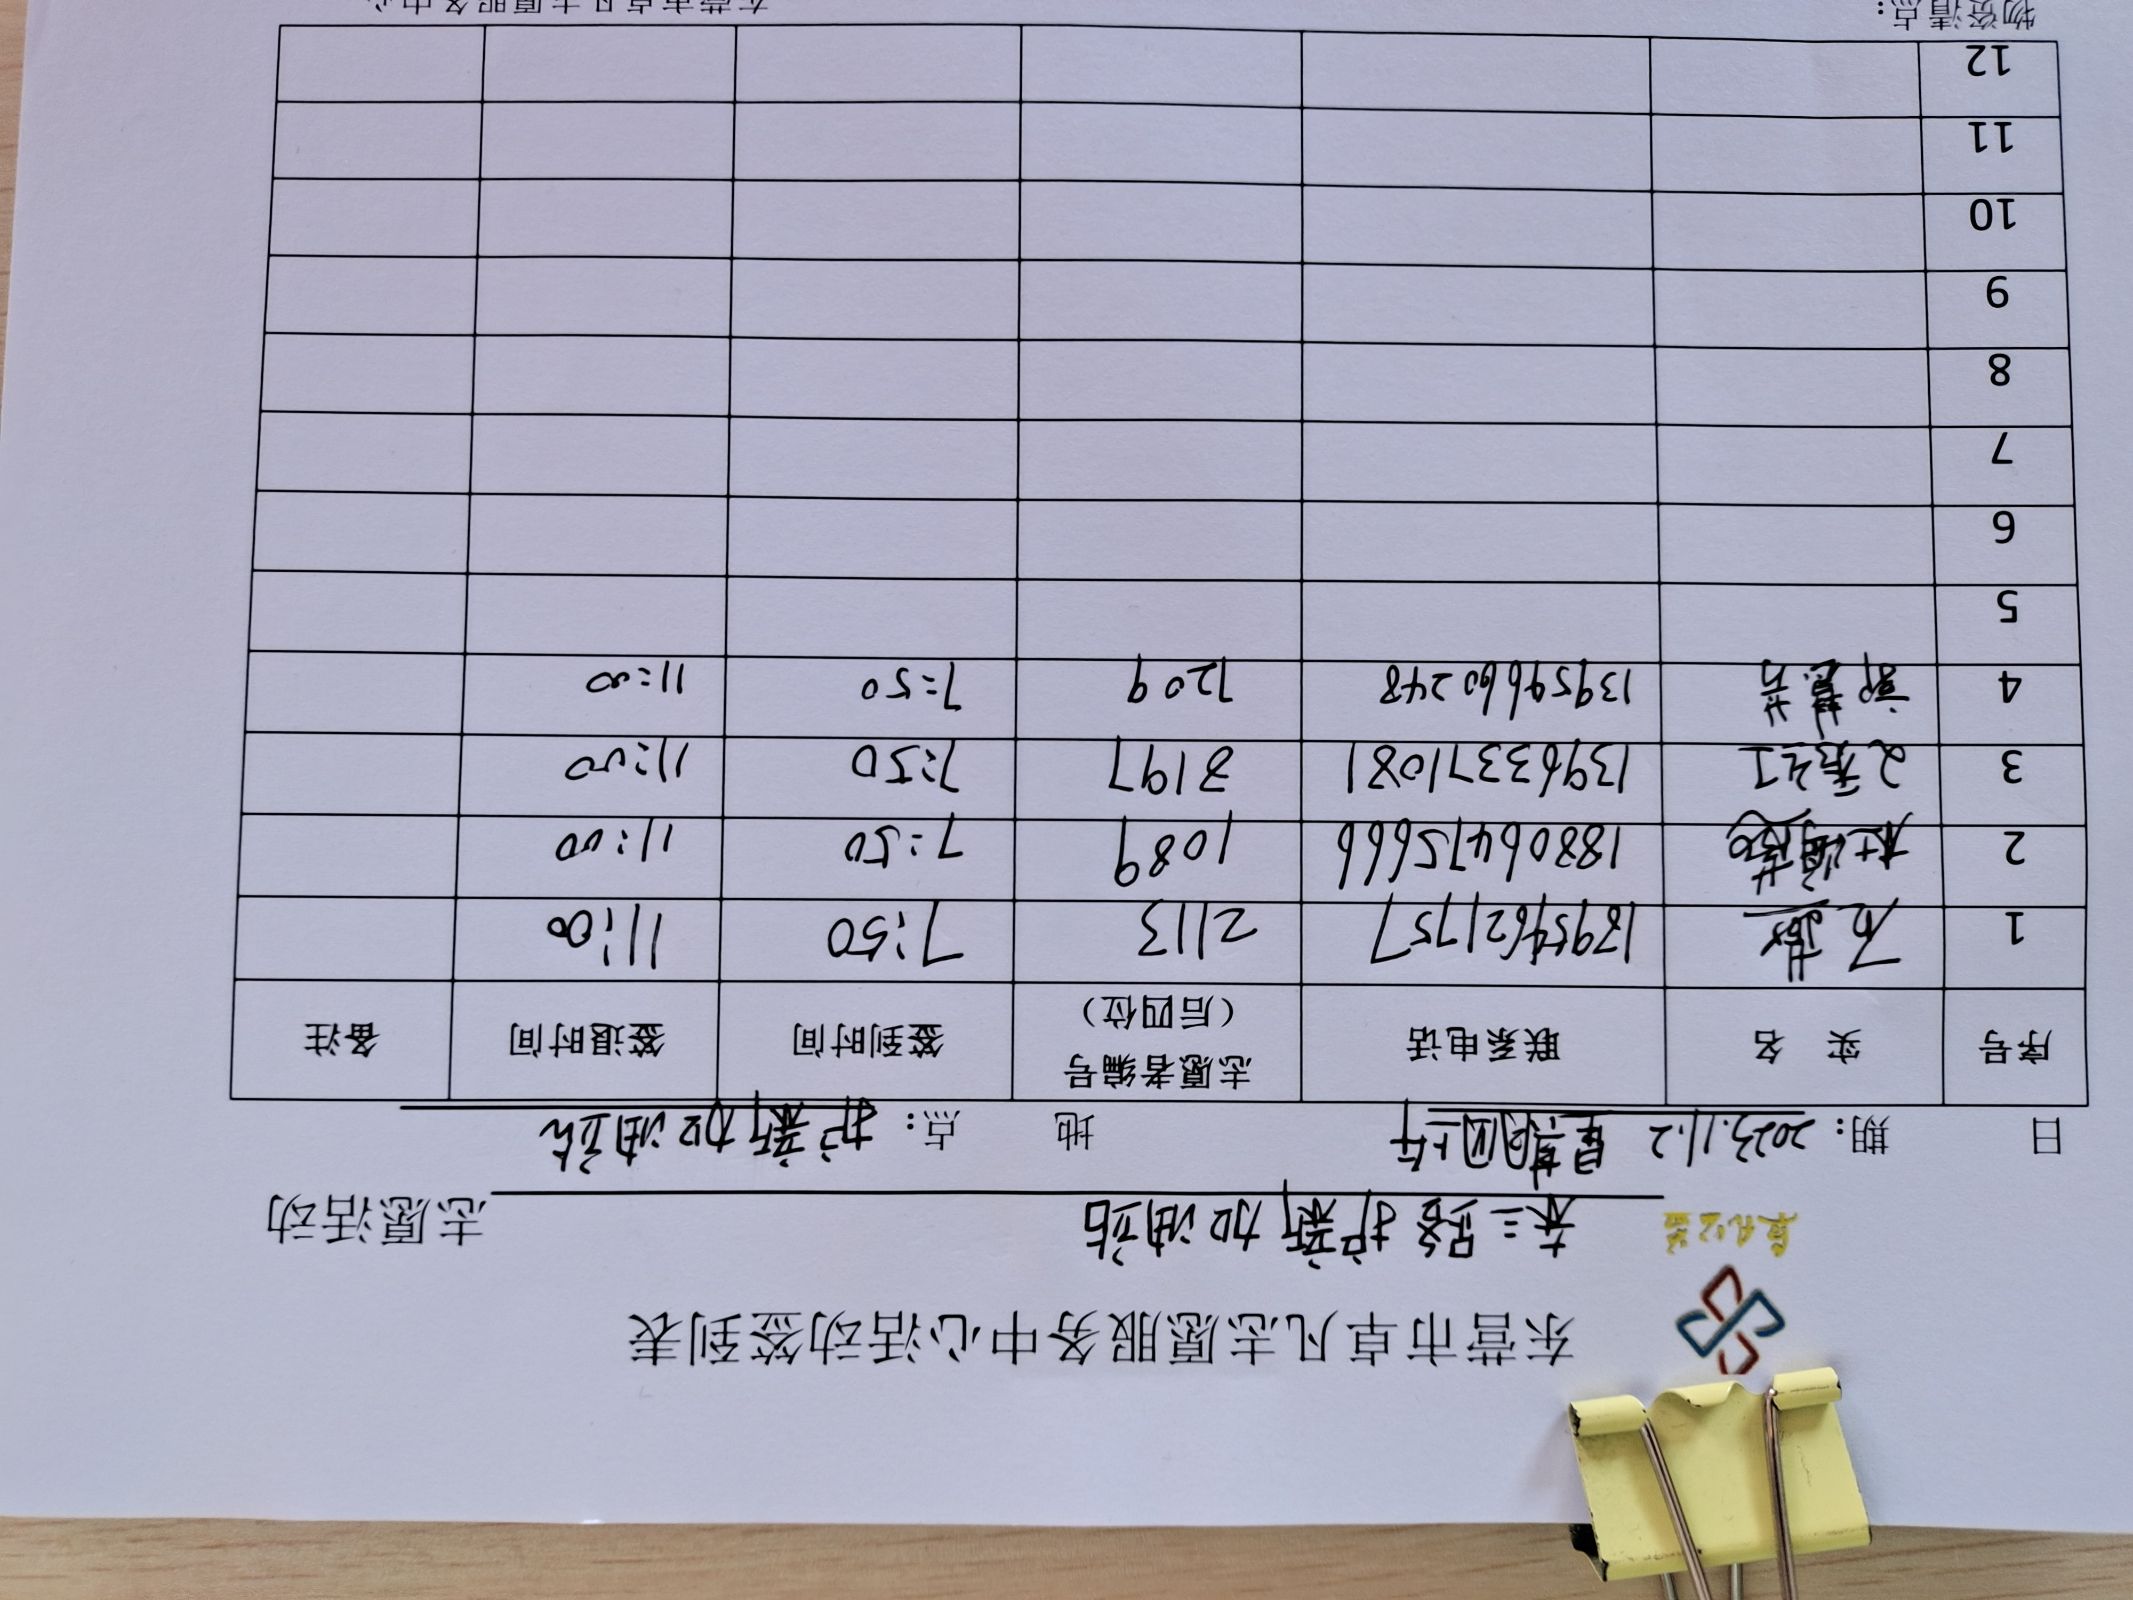 东营市卓凡志愿服务中心活动签到表
卓凡公益
东二路护新加油站 志愿活动
日 期：2023.11.2 星期四上午 地 点：护新加油站
序号 实 名 联系电话 志愿者编号（后四位） 签到时间 签退时间 备注
1 18954621757 2113 7:50 11:00
2 18806475666 1089 7:50 11:00
3 13963371081 3197 7:50 11:00
4 郭慧芳 13954660248 7209 7:50 11:00
5
6
7
8
9
10
11
12
物资清点： 东营市卓凡志愿服务中心